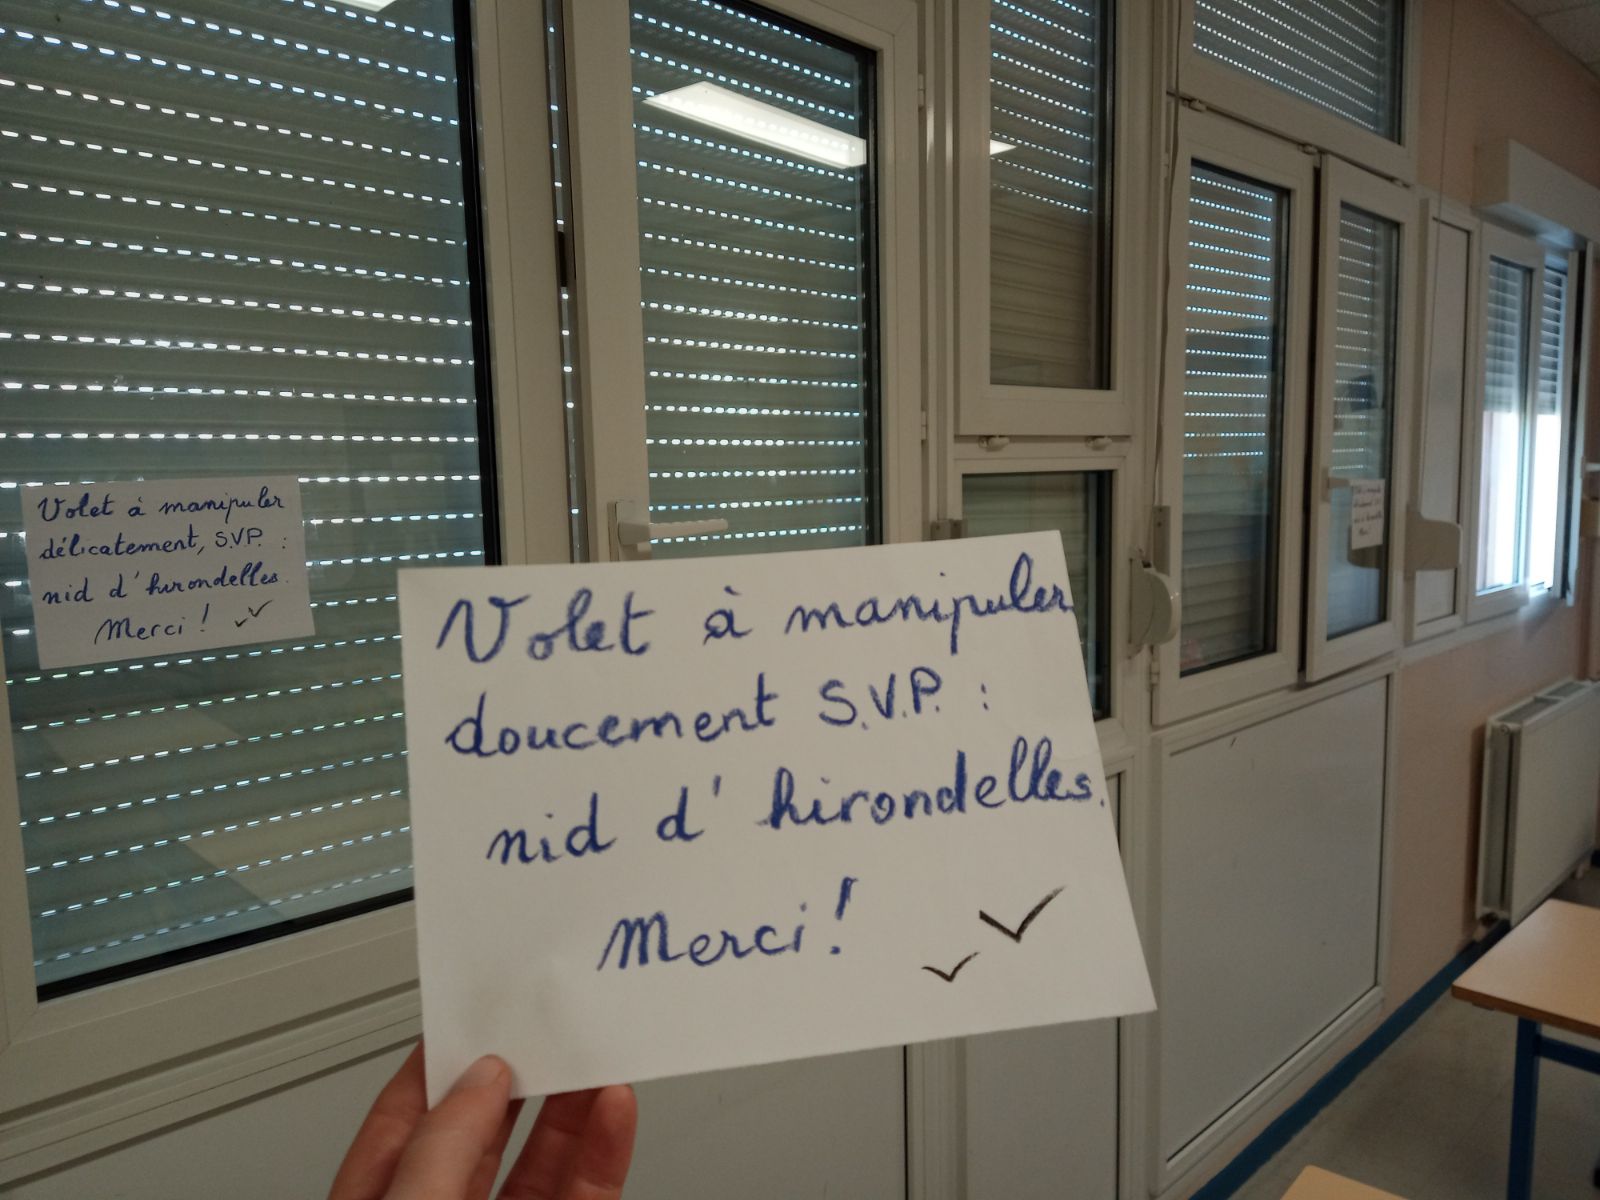 Volet à manipuler
délicatement, S.V.P. :
nid d'hirondelles.
Merci !
Volet à manipuler
doucement S.V.P. :
nid d'hirondelles.
Merci !